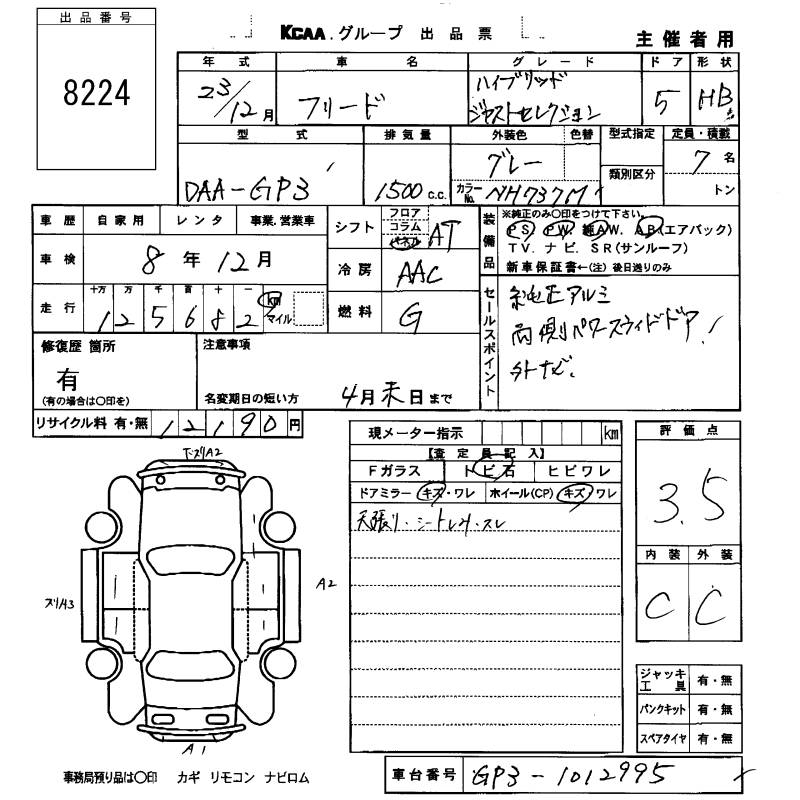 出品番号
8224
KCAA.グループ 出品票
主催者用
年式 車名 グレード ドア 形状
23/12月 フリード ハイブリッド
ジャストセレクション 5 HB
型式 排気量 外装色 色替 型式指定 定員・積載
DAA-GP3 1500c.c. グレー 7名
カラーNo. NH737M 類別区分 トン
車歴 自家用 レンタ 事業.営業車
車検 8年12月
走行 十万 万 千 百 十 一
125682 km マイル
シフト フロア コラム パネル AT
冷房 AAC
燃料 G
装備品 ※純正のみ○印をつけて下さい。
PS PW 純AW. AB(エアバック)
TV. ナビ. SR(サンルーフ)
新車保証書←(注) 後日送りのみ
セールスポイント
純正アルミ
両側パワースライドドア!
外ナビ.
修復歴 箇所
有
(有の場合は○印を)
注意事項
名変期日の短い方 4月末日まで
リサイクル料 有・無 12190円
現メーター指示 km
【査定員記入】
Fガラス トビ石 ヒビワレ
ドアミラー キズ・ワレ ホイール(CP) キズ・ワレ
天張り・シートしみ・スレ
評価点
3.5
内装 外装
C C
ジャッキ工具 有・無
パンクキット 有・無
スペアタイヤ 有・無
下ズリA2
ズリA3
A2
A1
事務局預り品は○印 カギ リモコン ナビロム
車台番号 GP3-1012995